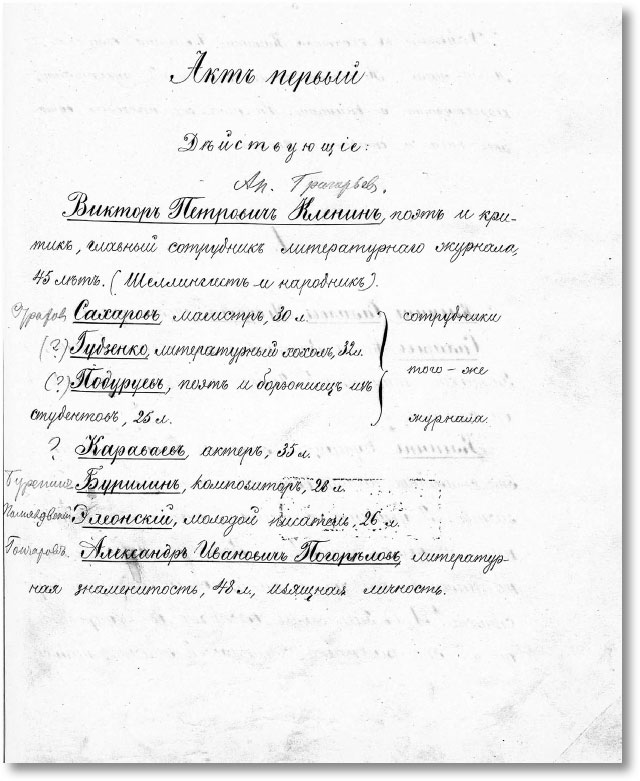 Актъ первый
Дѣйствующіе:
Ап. Григорьев.
Викторъ Петровичъ Кленинъ, поэтъ и кри-
тикъ, главный сотрудникъ литературнаго журнала,
45 лѣтъ. (Шеллингистъ и народникъ).
Сахаровъ, магистръ, 30 л. сотрудники
(?) Губзенко, литературный хохолъ, 32 л.
(?) Подуруевъ, поэтъ и борзописецъ изъ того-же
студентовъ, 25 л. журнала.
? Караваевъ, актеръ, 35 л.
Бурилинъ, композиторъ, 28 л.
Элеонскій, молодой писатель, 26 л.
Гончаровъ. Александръ Ивановичъ Погорѣловъ, литератур-
ная знаменитость, 48 л., изящная личность.